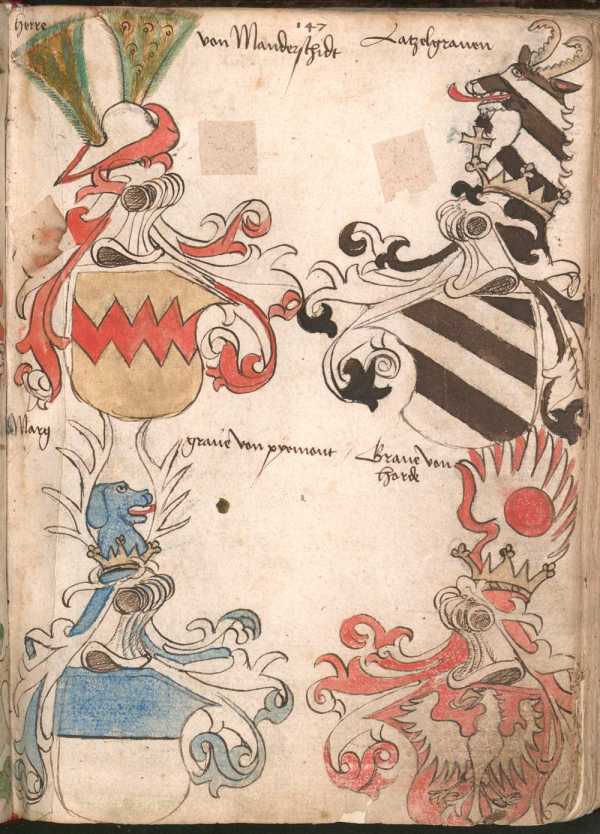 herre
von Manderschidt
147
Latzelgraven
Marg
grave von pyrmont
Grave von
Horde